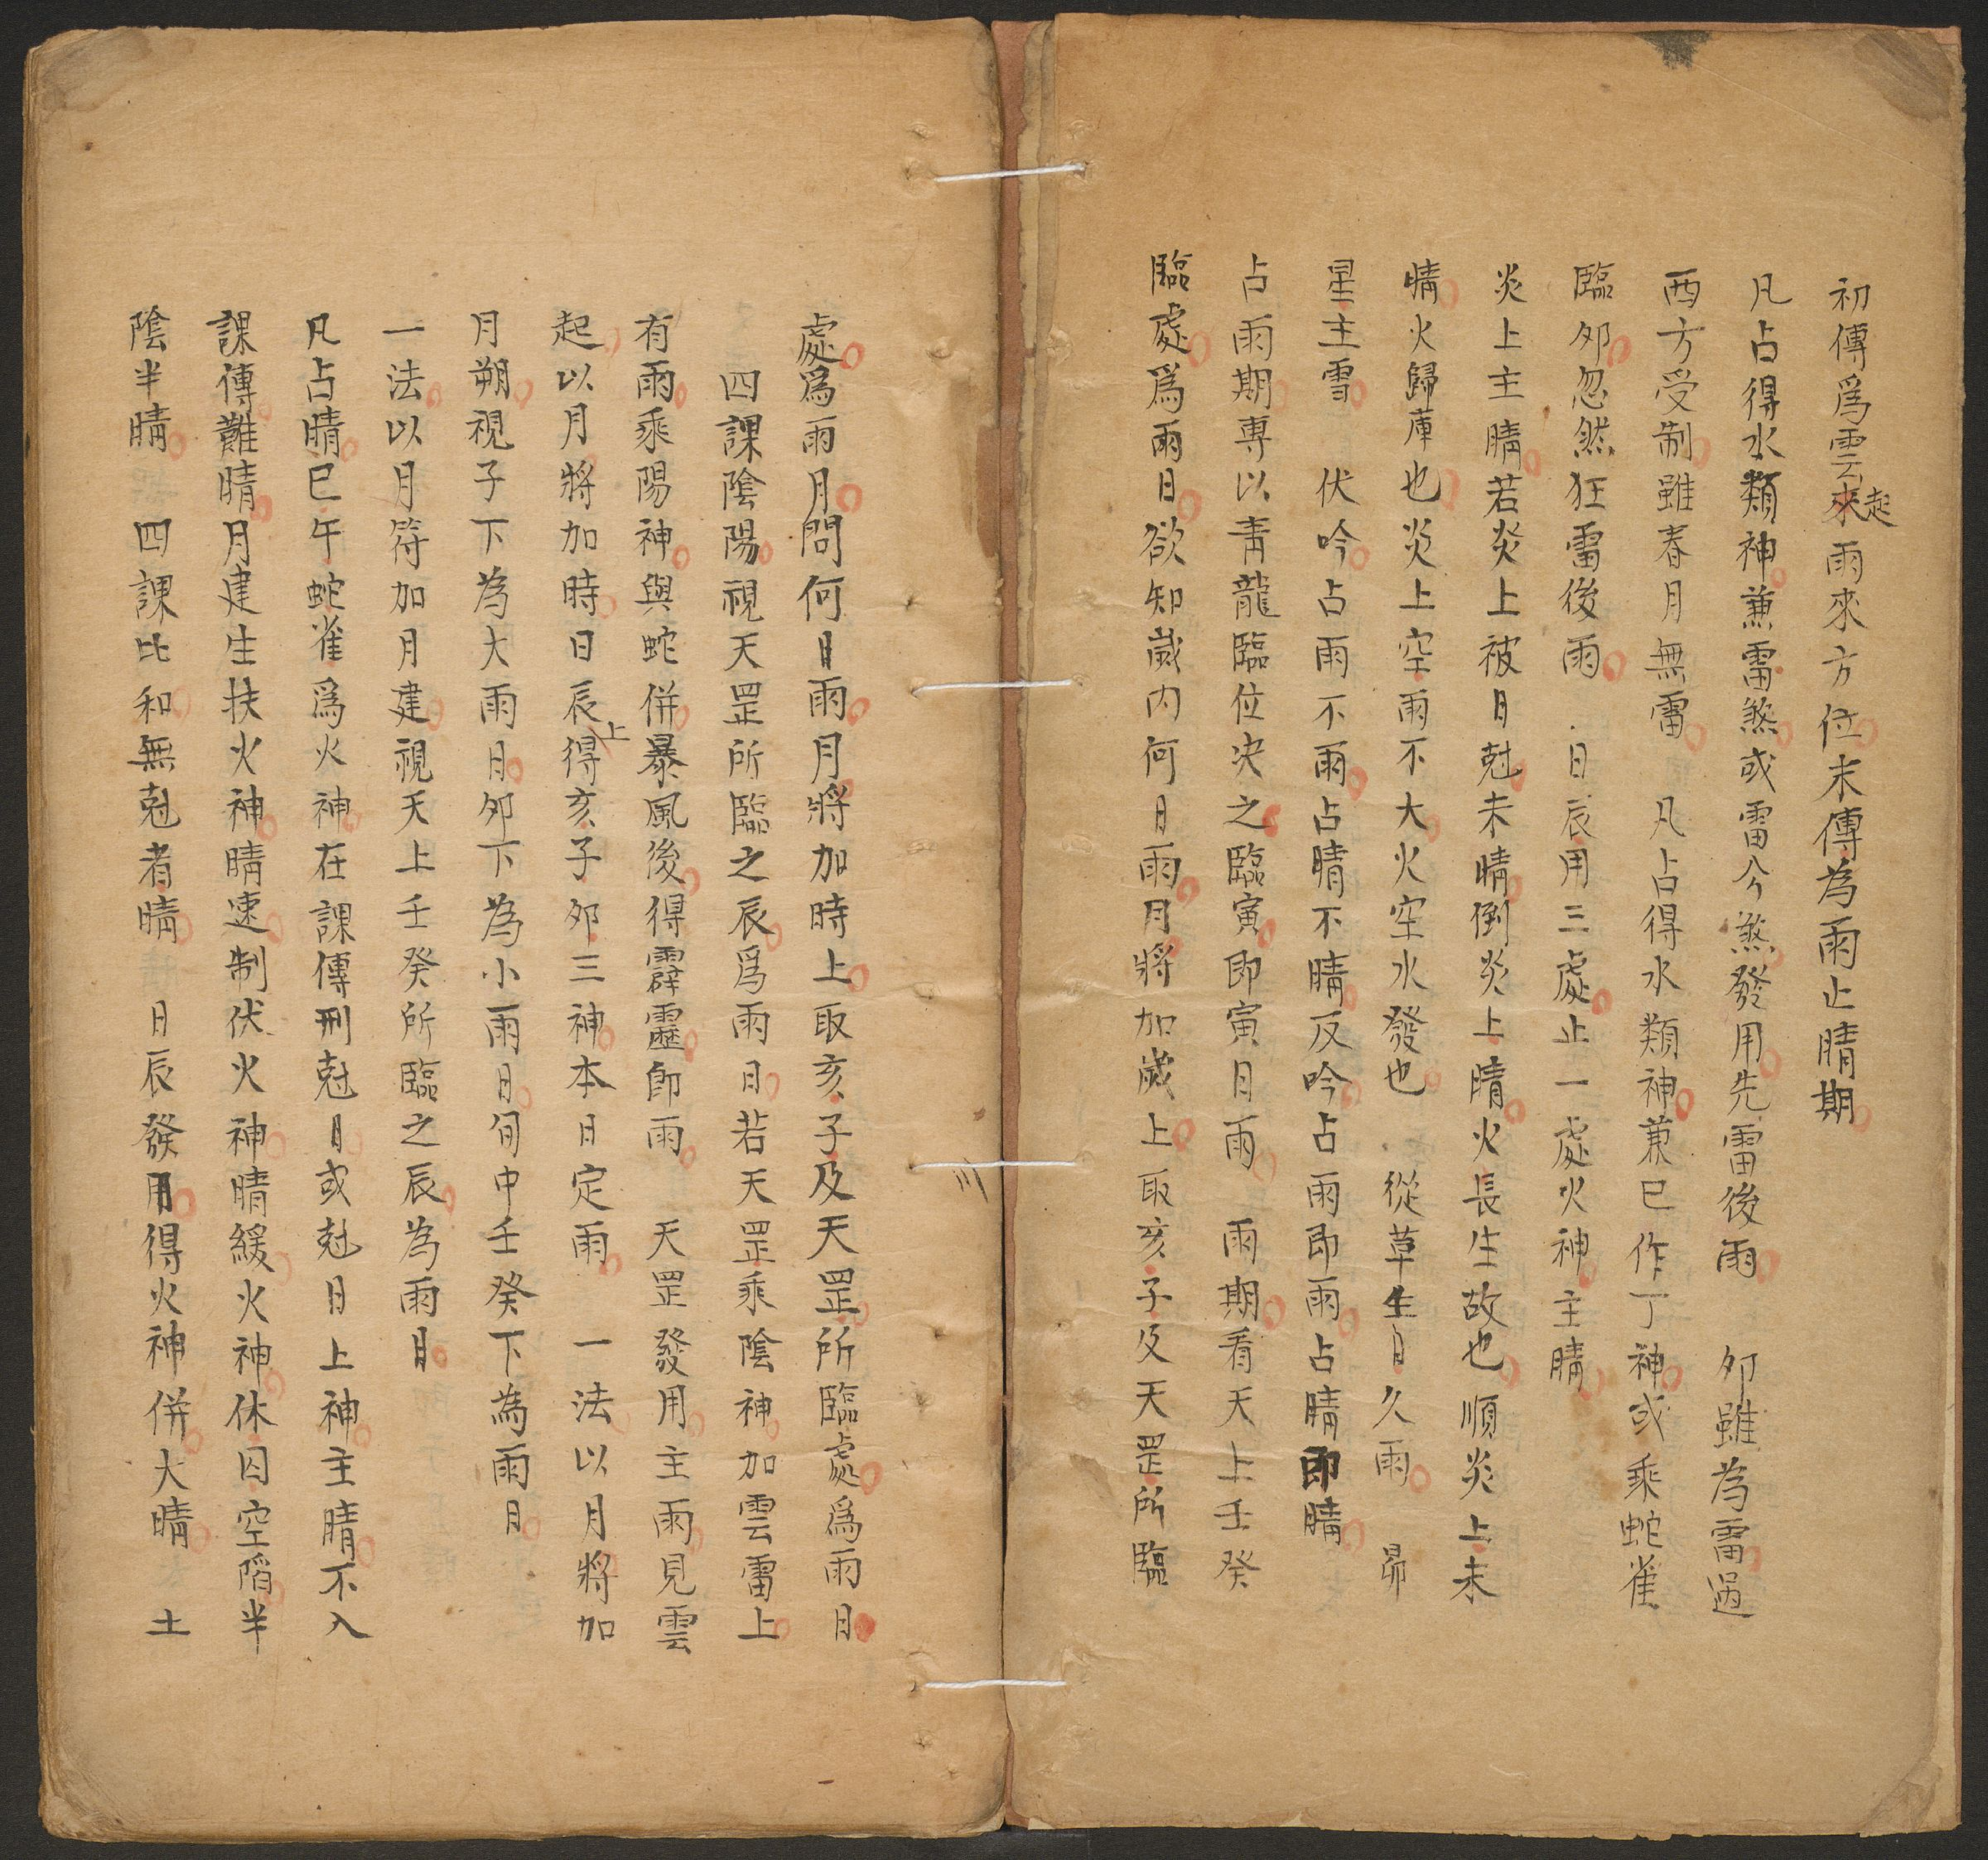 初傳爲雲起來雨來方位末傳為雨止晴期
凡占得水類神兼雷煞或雷公煞發用先雷後雨　夘雖為雷過
西方受制雖春月無雷　凡占得水類神兼巳作丁神或乘蛇雀
臨夘忽然狂雷後雨　日辰用三處止一處火神主晴
炎上主晴若炎上被日尅未晴倒炎上晴火長生故也順炎上未
晴火歸庫也炎上空雨不大火空水發也　從草生日久雨　昴
星主雪　伏吟占雨不雨占晴不晴反吟占雨即雨占晴即晴
占雨期專以青龍臨位决之臨寅即寅日雨　雨期看天上壬癸
臨處爲雨日欲知歲内何月雨月將加歲上取亥子及天罡所臨
處爲雨月問何日雨月將加時上取亥子及天罡所臨處爲雨日
四課陰陽視天罡所臨之辰爲雨日若天罡乘陰神加雲雷上
有雨乘陽神與蛇併暴風後得霹靂卽雨　天罡發用主雨見雲
起以月將加時日辰上得亥子夘三神本日定雨　一法以月將加
月朔視子下為大雨日夘下為小雨日旬中壬癸下為雨日
一法以月符加月建視天上壬癸所臨之辰為雨日
凡占晴巳午蛇雀爲火神在課傳刑尅日或尅日上神主晴不入
課傳難晴月建生扶火神晴速制伏火神晴緩火神休囚空陷半
陰半晴　四課比和無尅者晴　日辰發用得火神併大晴　土